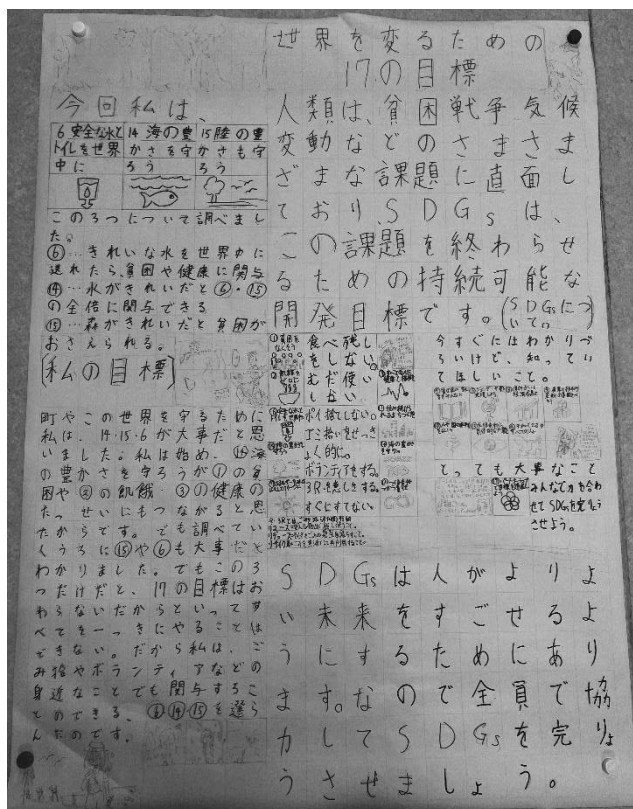 世界を変るための
17の目標
人類は、貧困戦争気候
変動などのさまさま
ざまな課題に直面し
ており、SDGsは、
この課題を終わらせ
るための持続可能な
開発目標です。(SDGsについて)
今回私は、
6 安全な水と
トイレを世界
中に
14 海の豊
かさを守
ろう
15 陸の豊
かさも守
ろう
この3つについて調べまし
た。
⑥…きれいな水を世界中に
送れたら、貧困や健康に関与
⑭…水がきれいだと⑥・⑮
の全倍に関与できる
⑮…森がきれいだと貧困が
おさえられる。
[私の目標]
町やこの世界を守るために
私は、14・15・6が大事だと思
いました。私は始め、⑭海
の豊かさを守ろうが①の貧
困や②の飢餓・③の健康の
たっせいにもつながると思
たからです。でも調べてい
くうちに⑮や⑥も大事だと
わかりました。でもこの3
つだけだと、17の目標はお
わらないだからといってす
べてを一っきにやることは
できない。だから私は、ご
み捨やボランティアなどの
身近なことでも関与するこ
とのできる、⑥⑭⑮を選ら
んだのです。
食べ残し
をしない。
むだ使い
しない
ポイ捨てしない。
ゴミ拾いをせっき
よく的に。
ボランティアをする。
3Rを意しきする。
すぐにすてない
今すぐにはわかりづ
らいけど、知ってい
てほしいこと。
とっても大事なこと
みんなで力を合わ
せてSDGsを完りょう
させよう。
SDGsは人がよりよ
い未来をすごせるよ
うにするためにあり
ます。なので全員で協
力してSDGsを完りょ
うさせましょう。